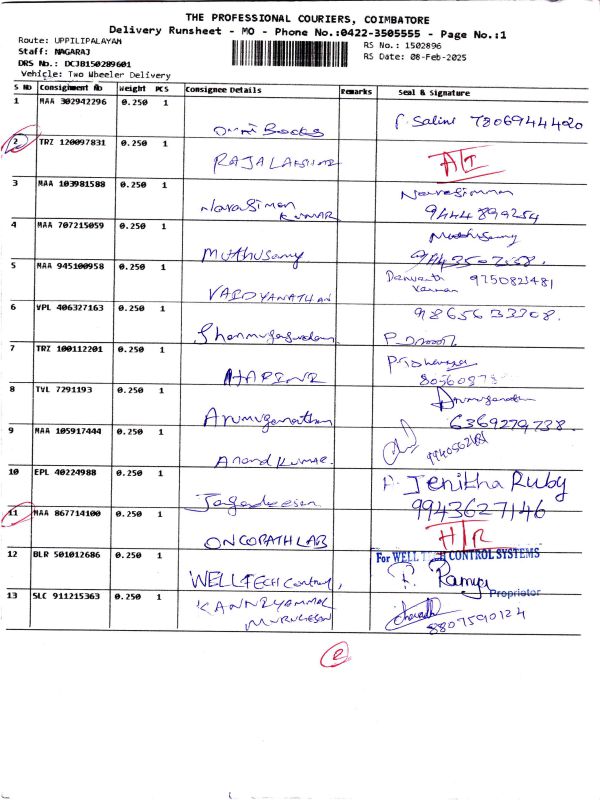 THE PROFESSIONAL COURIERS, COIMBATORE
Delivery Runsheet - MO - Phone No.:0422-3505555 - Page No.:1
Route: UPPILIPALAYAM
RS No.: 1502896
Staff: NAGARAJ
RS Date: 08-Feb-2025
DRS No.: DCJB150289601
Vehicle: Two Wheeler Delivery
S No Consignment No Weight PCS Consignee Details Remarks Seal & Signature
1 MAA 302942296 0.250 1
P. Salini 7806944420
2 TRZ 120097831 0.250 1
RAJALAKSHMI A/I
3 MAA 103981588 0.250 1
Narasiman
KUMAR
Narasimman
9444899254
4 MAA 707215059 0.250 1
Muthusamy
Muthusamy
5 MAA 945100958 0.250 1
VAIDYANATHAN
9750823481
6 VPL 406327163 0.250 1
Shanmugasundaram
9865633208.
7 TRZ 100112201 0.250 1
HARINI
8 TVL 7291193 0.250 1
Arumuganathan
Arumuganathan
6369279738.
9 MAA 105917444 0.250 1
Anand Kumar.
10 EPL 40224988 0.250 1
Jagadeesan
A. Jenitha Ruby
9943627146
11 MAA 867714100 0.250 1
ONCOPATH LAB
H/R
12 BLR 501012686 0.250 1
WELLTECH Control,
For WELL TECH CONTROL SYSTEMS
R. Ramya
Proprietor
13 SLC 911215363 0.250 1
KANNIYAMMAL
MURUGESAN
8807590124
2